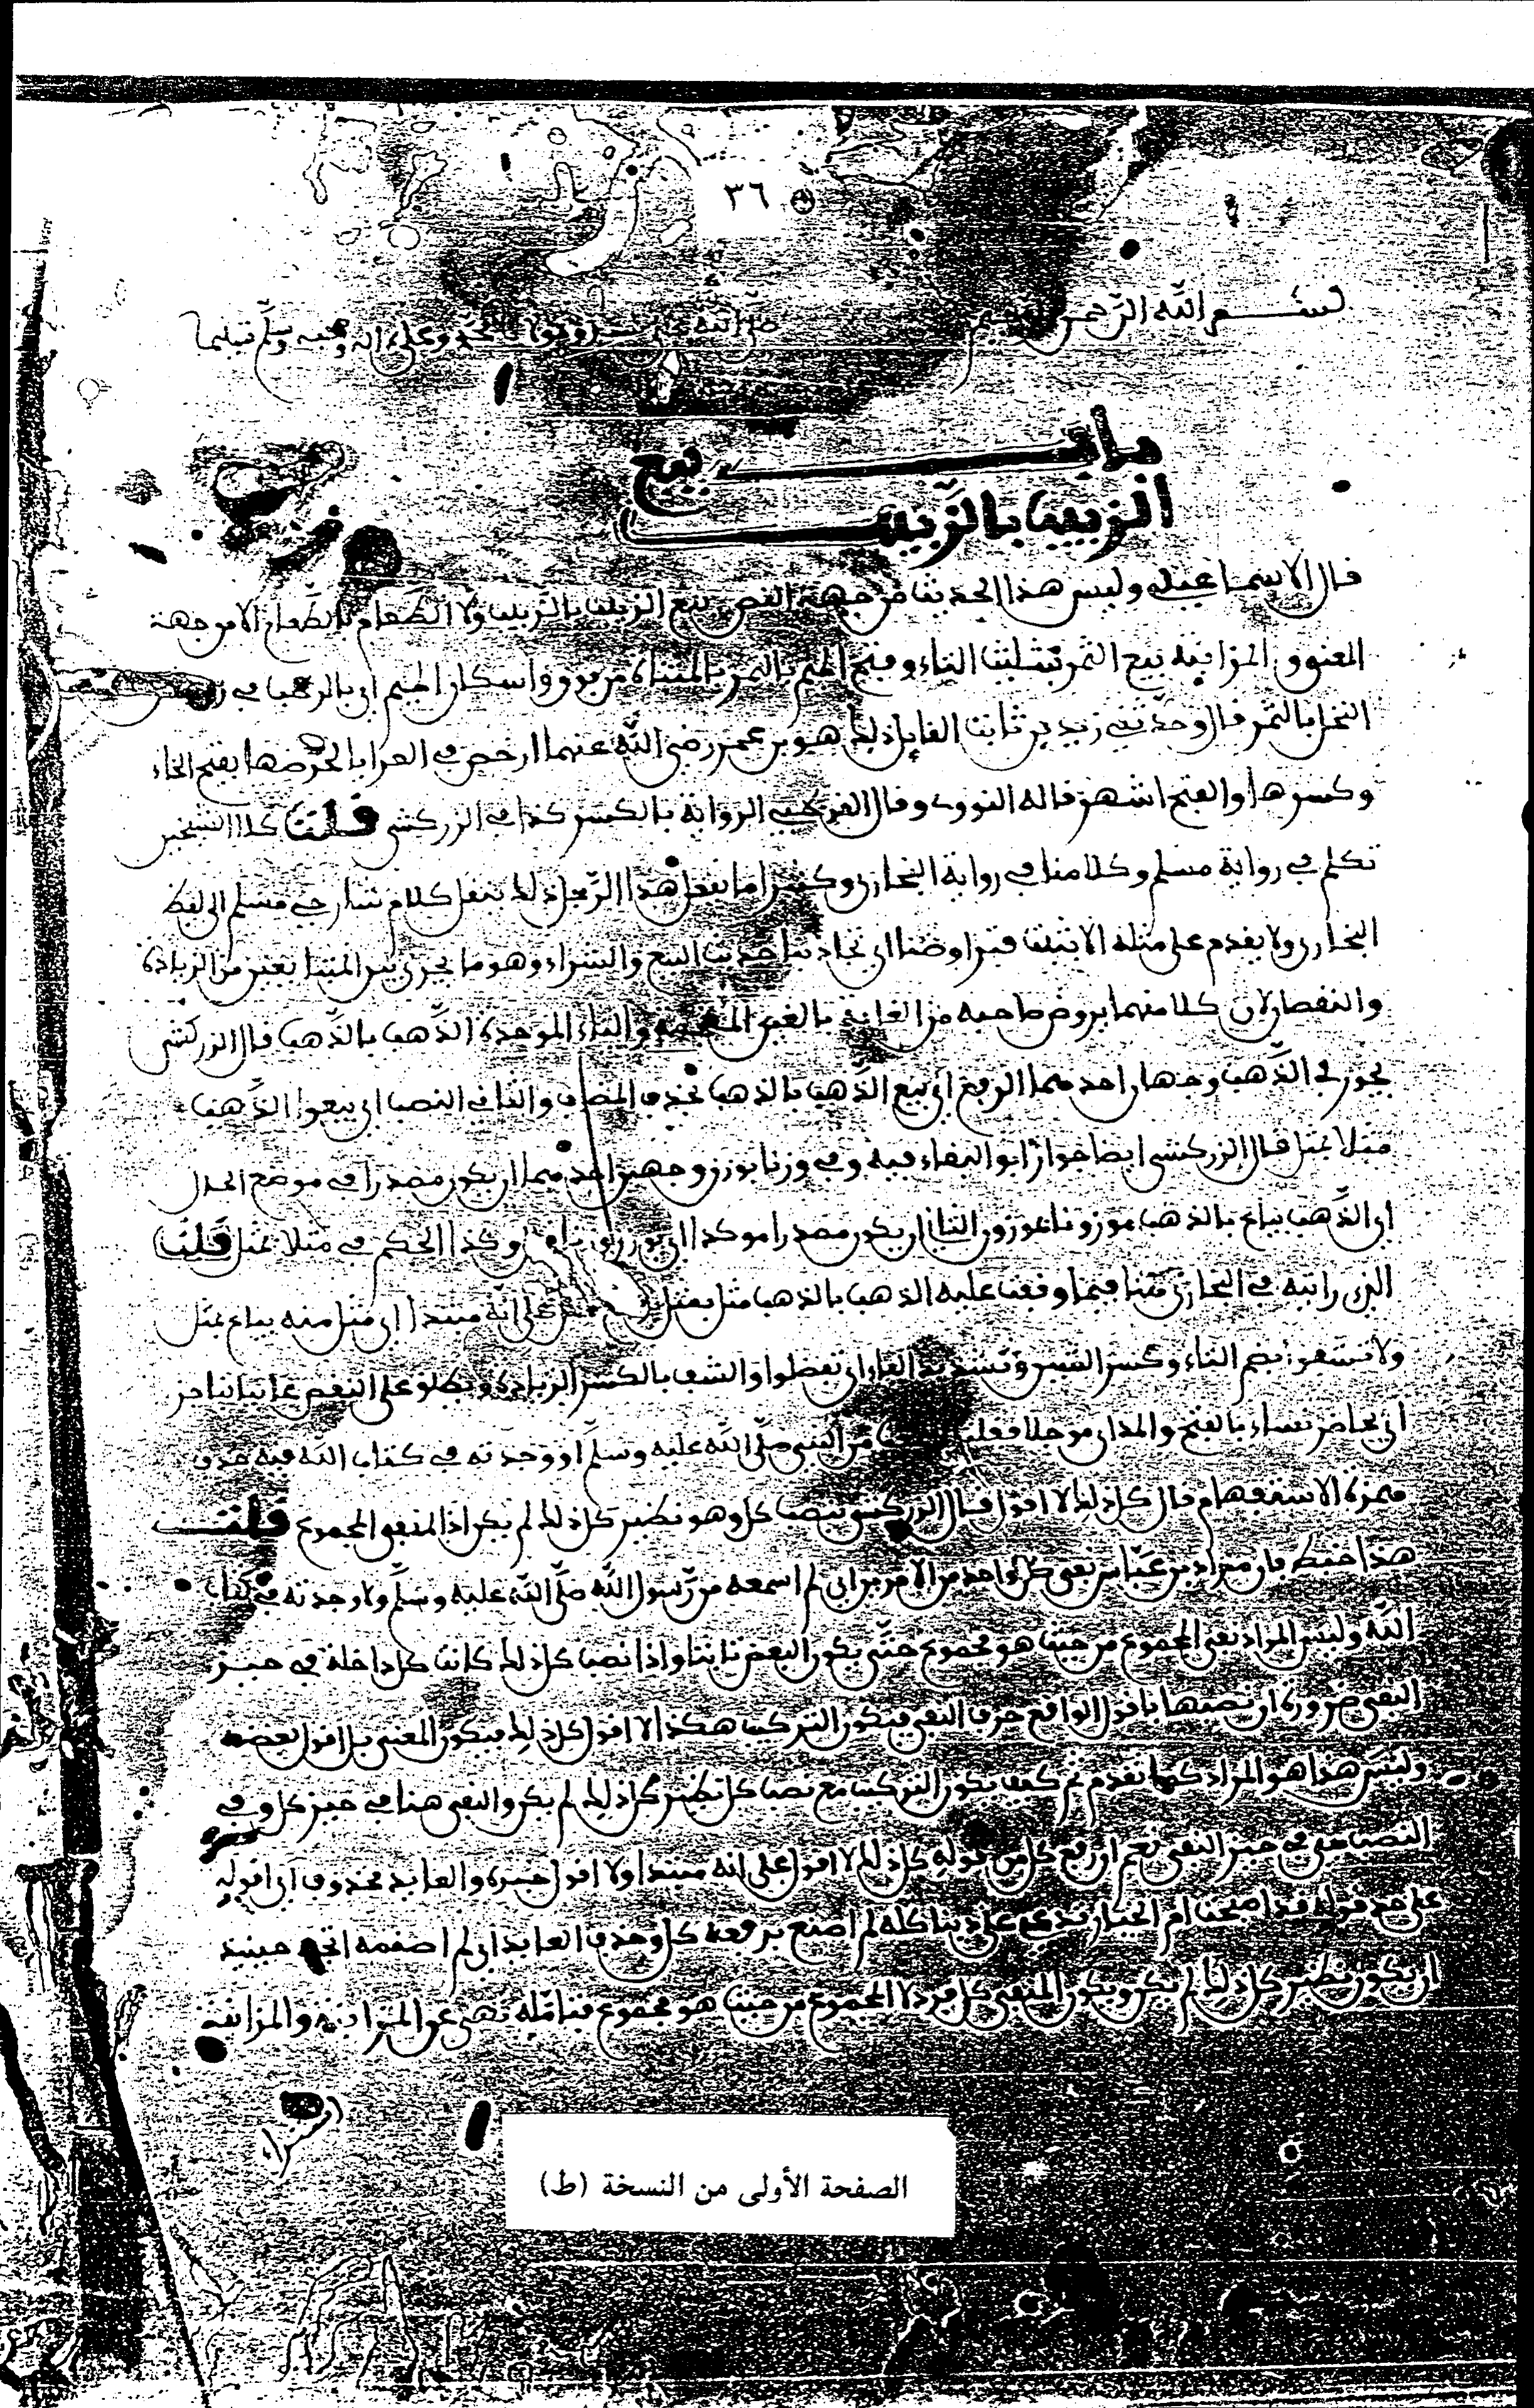 ٣٦
بسم الله الرحمن الرحيم صلى الله على سيدنا ومولانا محمد وعلى آله وصحبه وسلم تسليما
باب بيع
الزبيب بالزبيب
قال الاسماعيلي وليس هذا الحديث من جهة النص بيع الزبيب بالزبيب ولا الطعام بالطعام الا من جهة
المعنى المزابنة بيع الثمر بتثليث الثاء وفتح الميم بالتمر بالمثناة من فوق واسكان الميم اي بالرطب في
النخل بالتمر قال وحدثني زيد بن ثابت القايل ذلك هو بن عمر رضي الله عنهما ارخص في العرايا بخرصها بفتح الخاء
وكسرها والفتح اشهر قاله النووي وقال القرطبي الرواية بالكسر كذا في الزركشي قلت كلا الشيخين
تكلم في رواية مسلم وكلامنا في رواية البخاري وكثيرا ما يفعل هذا الرجل ذلك ينقل كلام شارحي مسلم الى لفظ
البخاري ولا يقدم على مثله الا بتثبت فتراوضنا اي تجاذبنا حديث البيع والشراء وهو ما يجري بين المتبايعين من الزيادة
والنقصان لان كلا منهما يروض صاحبه من الغابة بالغين المعجمة والباء الموحدة الذهب بالذهب قال الزركشي
يجوز في الذهب وجهان احدهما الرفع اي بيع الذهب بالذهب بحذف المضاف والثاني النصب اي بيعوا الذهب
مثلا بمثل قال الزركشي ايضا جوز ابو البقاء فيه وفي وزنا بوزن وجهين احدهما ان يكون مصدرا في موضع الحال
اي الذهب يباع بالذهب موزونا بموزون الثاني ان يكون مصدرا موكدا اي يوزن وزنا وكذا الحكم في مثلا بمثل قلت
الذي رايته في البخاري متنا فيما وقفت عليه الذهب بالذهب مثل بمثل على انه مبتدا اي مثل منه يباع بمثل
ولا تشفوا بضم التاء وكسر الشين وتشديد الفاء اي تفضلوا والشف بالكسر الزيادة ويطلق على النقص غايبا بناجز
اي بحاضر نساء بالفتح والمد اي موجلا فقلت من النبي صلى الله عليه وسلم او وجدته في كتاب الله فيه حذف
همزة الاستفهام قال كل ذلك لا اقول قال الزركشي بنصب كل وهو نظير كل ذلك لم يكن اذ المنفي المجموع قلت
هذا خبط فان مراد بن عباس نفي كل واحد من الامرين اي لم اسمعه من رسول الله صلى الله عليه وسلم ولا وجدته في كتاب
الله وليس المراد نفي المجموع من حيث هو مجموع حتى يكون البعض ثابتا واذا نصب كل ذلك كانت كل داخلة في حيز
النفي ضرورة ان نصبها باقول الواقع حرف النفي فيكون التركيب هكذا لا اقول كل ذلك فيكون المعنى بل اقول بعضه
وليس هذا هو المراد كما تقدم ثم كيف يكون التركيب مع نصب كل نظير كل ذلك لم يكن والنفي هنا في حيز كل وفي
النصب هي في حيز النفي نعم ان رفع كل من قوله كل ذلك لا اقول على انه مبتدا ولا اقول خبره والعايد محذوف اي اقوله
على حد قوله قد اصبحت ام الخيار تدعي علي ذنبا كله لم اصنع برفع كل وحذف العايد اي لم اصنعه اتجه حينئذ
ان يكون نظير كل ذلك لم يكن ويكون المنفي كل فرد لا المجموع من حيث هو مجموع فتامله نهى عن المزابنة والمزابنة
اشتراء
الصفحة الأولى من النسخة (ط)